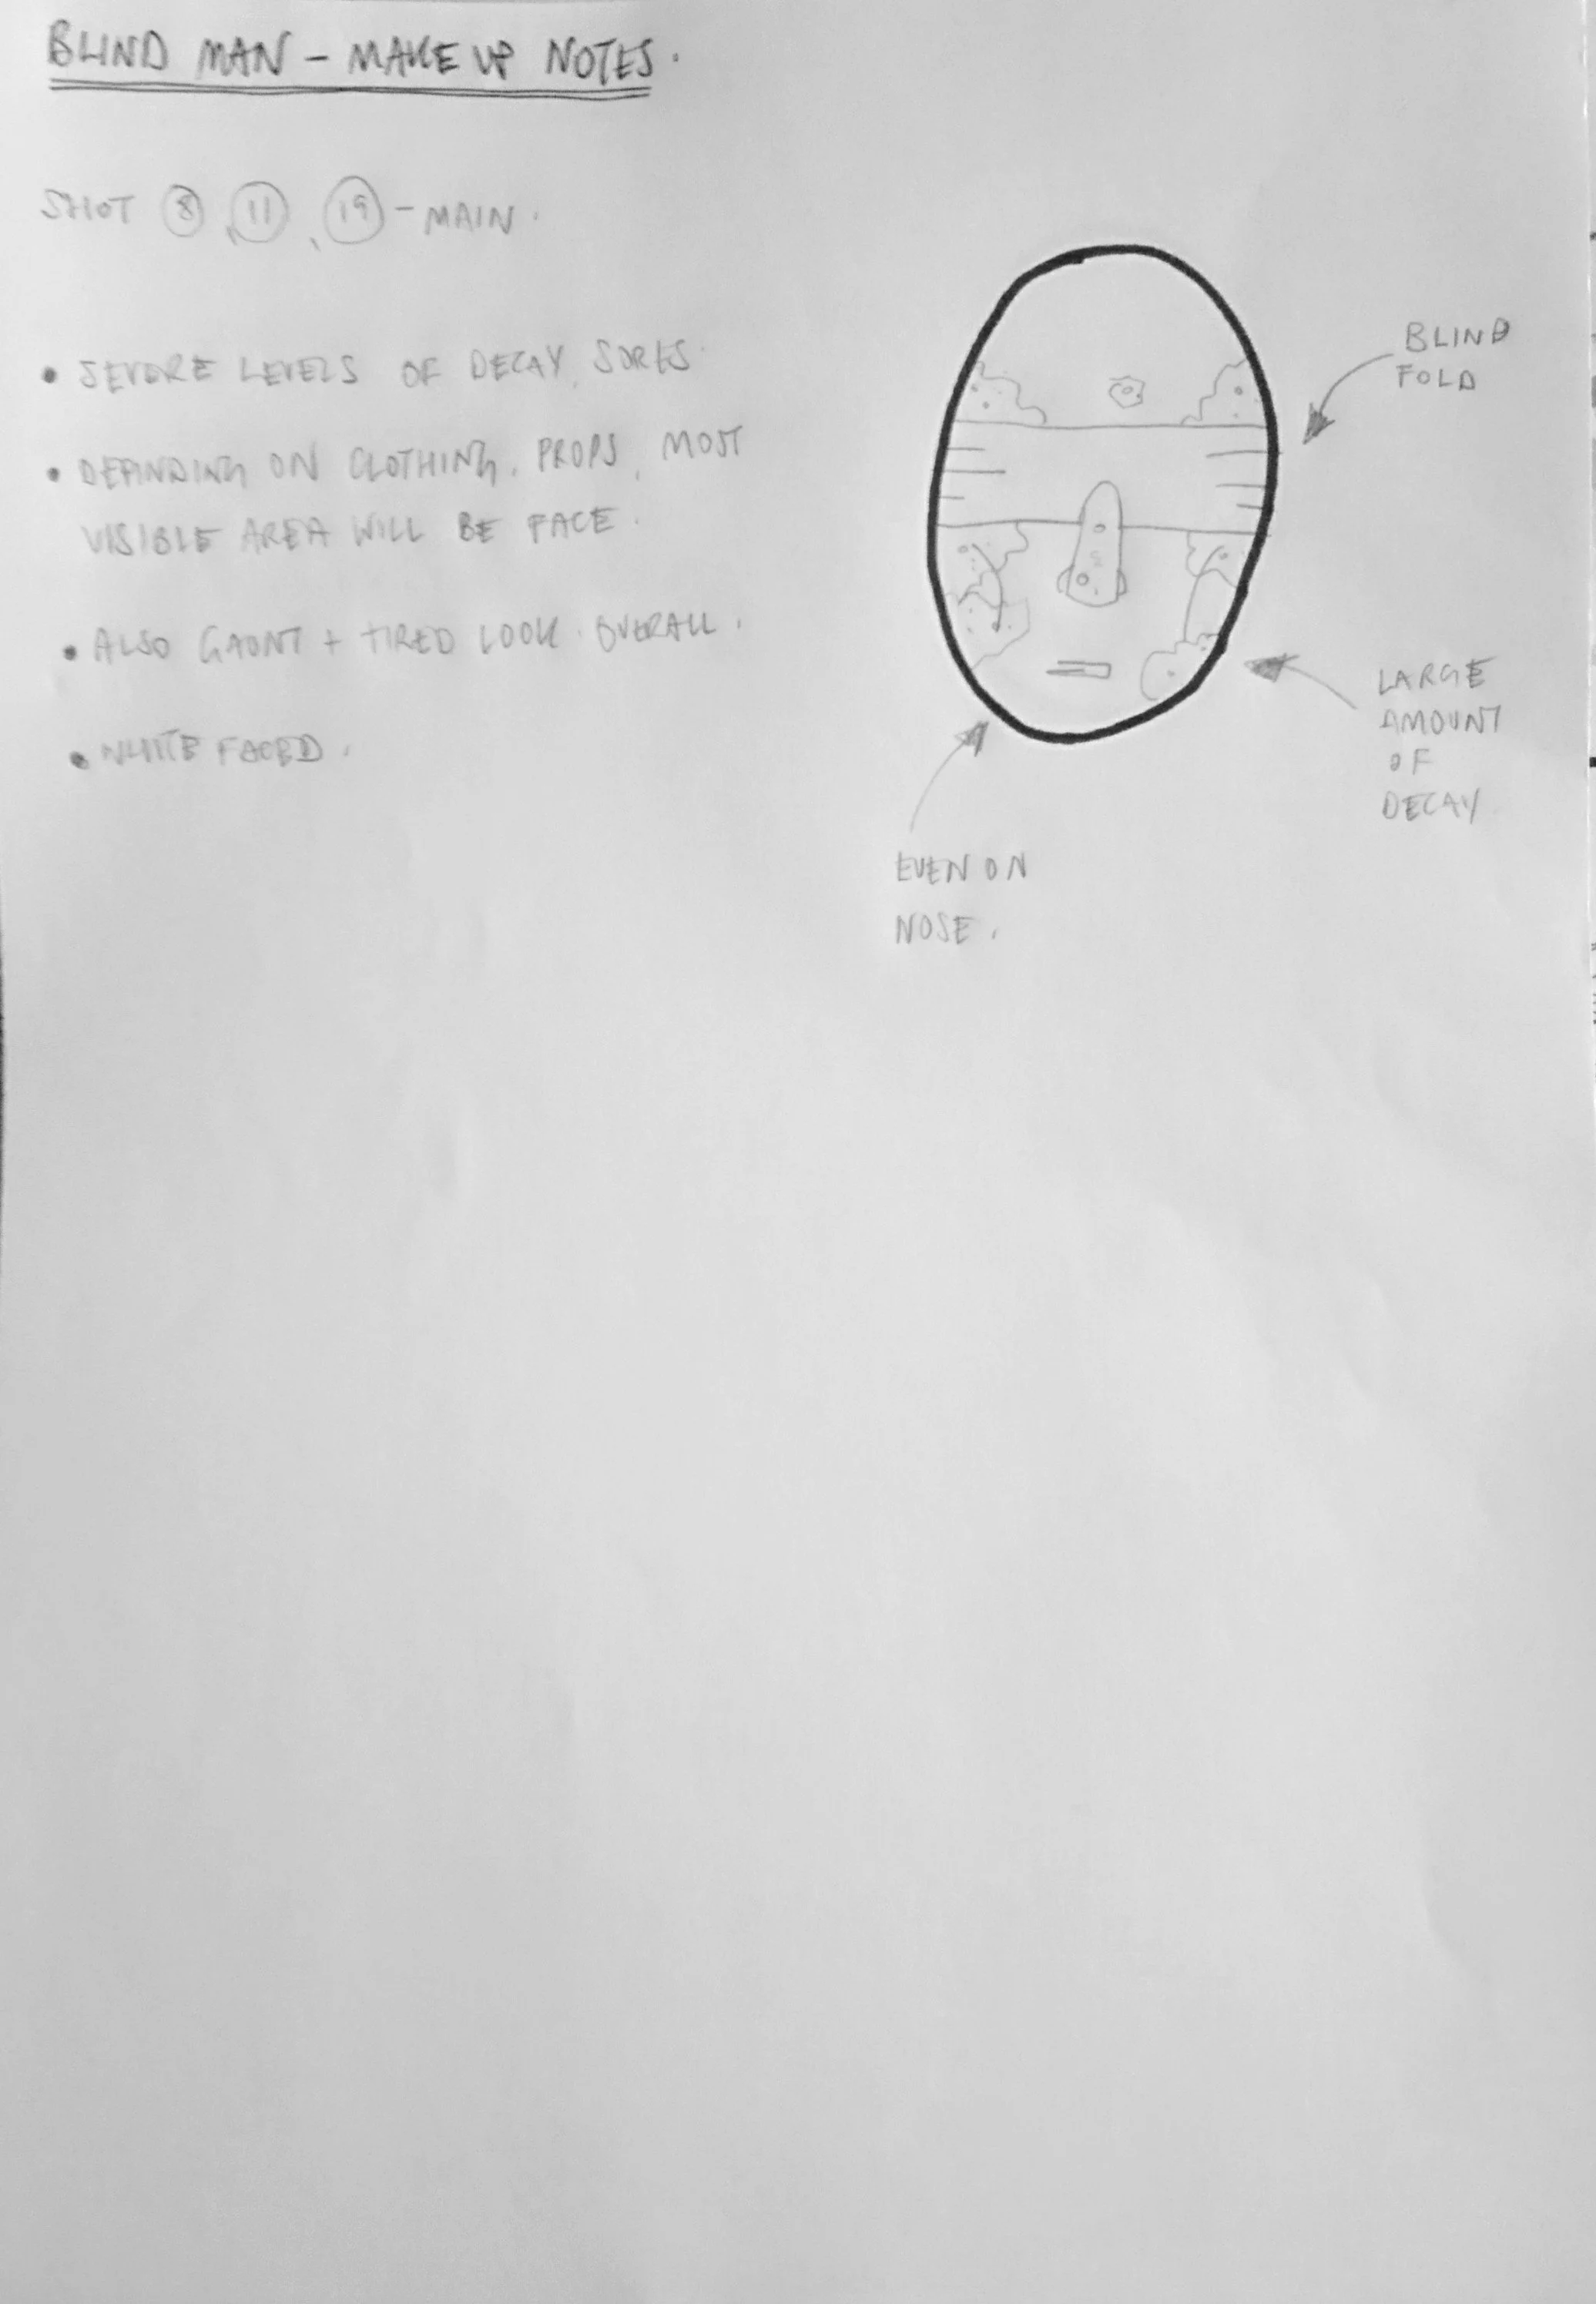 BLIND MAN - MAKE UP NOTES.
SHOT 8, 11, 19 - MAIN.
• SEVERE LEVELS OF DECAY, SORES.
• DEPENDING ON CLOTHING, PROPS, MOST
VISIBLE AREA WILL BE FACE.
• ALSO GAUNT + TIRED LOOK OVERALL.
• WHITE FACED.
BLIND
FOLD
LARGE
AMOUNT
OF
DECAY
EVEN ON
NOSE.